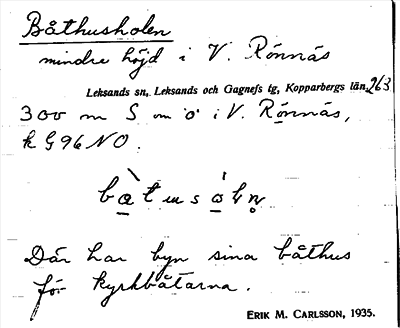 Båthusholen
mindre höjd i V. Rönnäs
Leksands sn, Leksands och Gagnefs tg, Kopparbergs län. 263
300 m S om ö i V. Rönnäs,
k G 96 NO.
Där har byn sina båthus
för kyrkbåtarna.
ERIK M. CARLSSON, 1935.